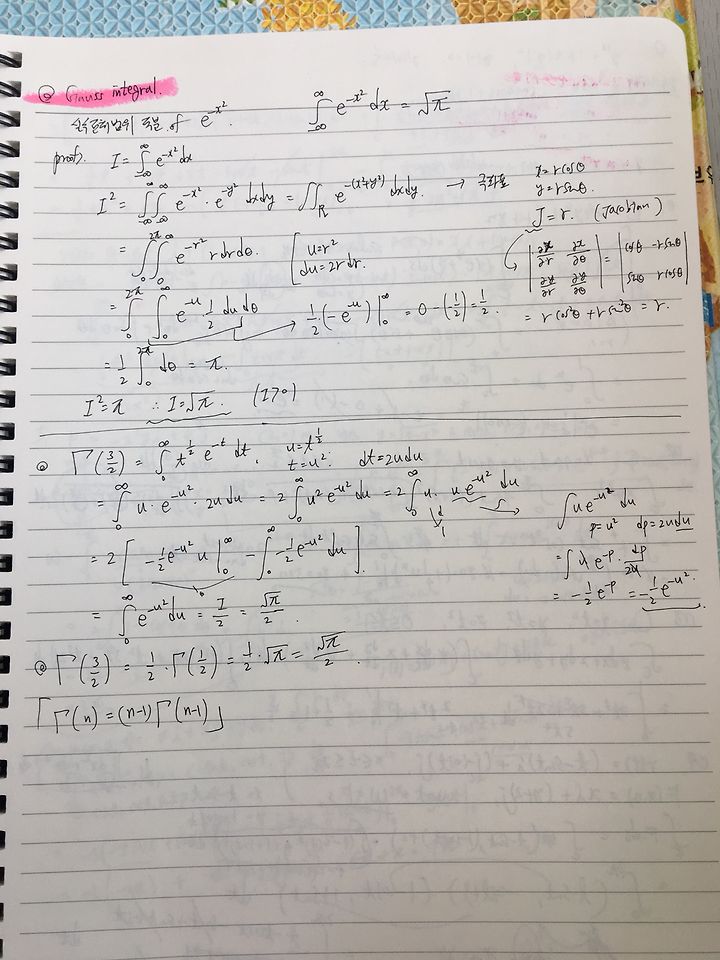 Gauss integral.
실수전체범위 적분 of e^{-x^2}. ∫_{-∞}^{∞} e^{-x^2} dx = √π
proof). I = ∫_{-∞}^{∞} e^{-x^2} dx
I^2 = ∫_{-∞}^{∞} ∫_{-∞}^{∞} e^{-x^2} · e^{-y^2} dxdy = ∬_R e^{-(x^2+y^2)} dxdy. → 극좌표 x = r cosθ
y = r sinθ.
J = r. (Jacobian)
= ∫_0^{2π} ∫_0^∞ e^{-r^2} r dr dθ. [ u = r^2
du = 2r dr.
| ∂x/∂r ∂x/∂θ | = | cosθ -r sinθ |
| ∂y/∂r ∂y/∂θ | | sinθ r cosθ |
= r cos^2θ + r sin^2θ = r.
= ∫_0^{2π} ∫_0^∞ e^{-u} · 1/2 du dθ → 1/2 · (-e^{-u}) |_0^∞ = 0 - (-1/2) = 1/2.
= 1/2 ∫_0^{2π} dθ = π.
I^2 = π ∴ I = √π. (I > 0)
Γ(3/2) = ∫_0^∞ t^{1/2} e^{-t} dt. u = t^{1/2}
t = u^2. dt = 2u du
= ∫_0^∞ u · e^{-u^2} · 2u du = 2 ∫_0^∞ u^2 e^{-u^2} du = 2 ∫_0^∞ u · u e^{-u^2} du
d
1
∫ u e^{-u^2} du
p = u^2 dp = 2u du
= ∫ u e^{-p} · dp/2u
= -1/2 e^{-p} = -1/2 e^{-u^2}.
= 2 [ -1/2 e^{-u^2} u |_0^∞ - ∫_0^∞ -1/2 e^{-u^2} du ].
0
= ∫_0^∞ e^{-u^2} du = I/2 = √π/2.
Γ(3/2) = 1/2 · Γ(1/2) = 1/2 · √π = √π/2.
「Γ(n) = (n-1) Γ(n-1)」